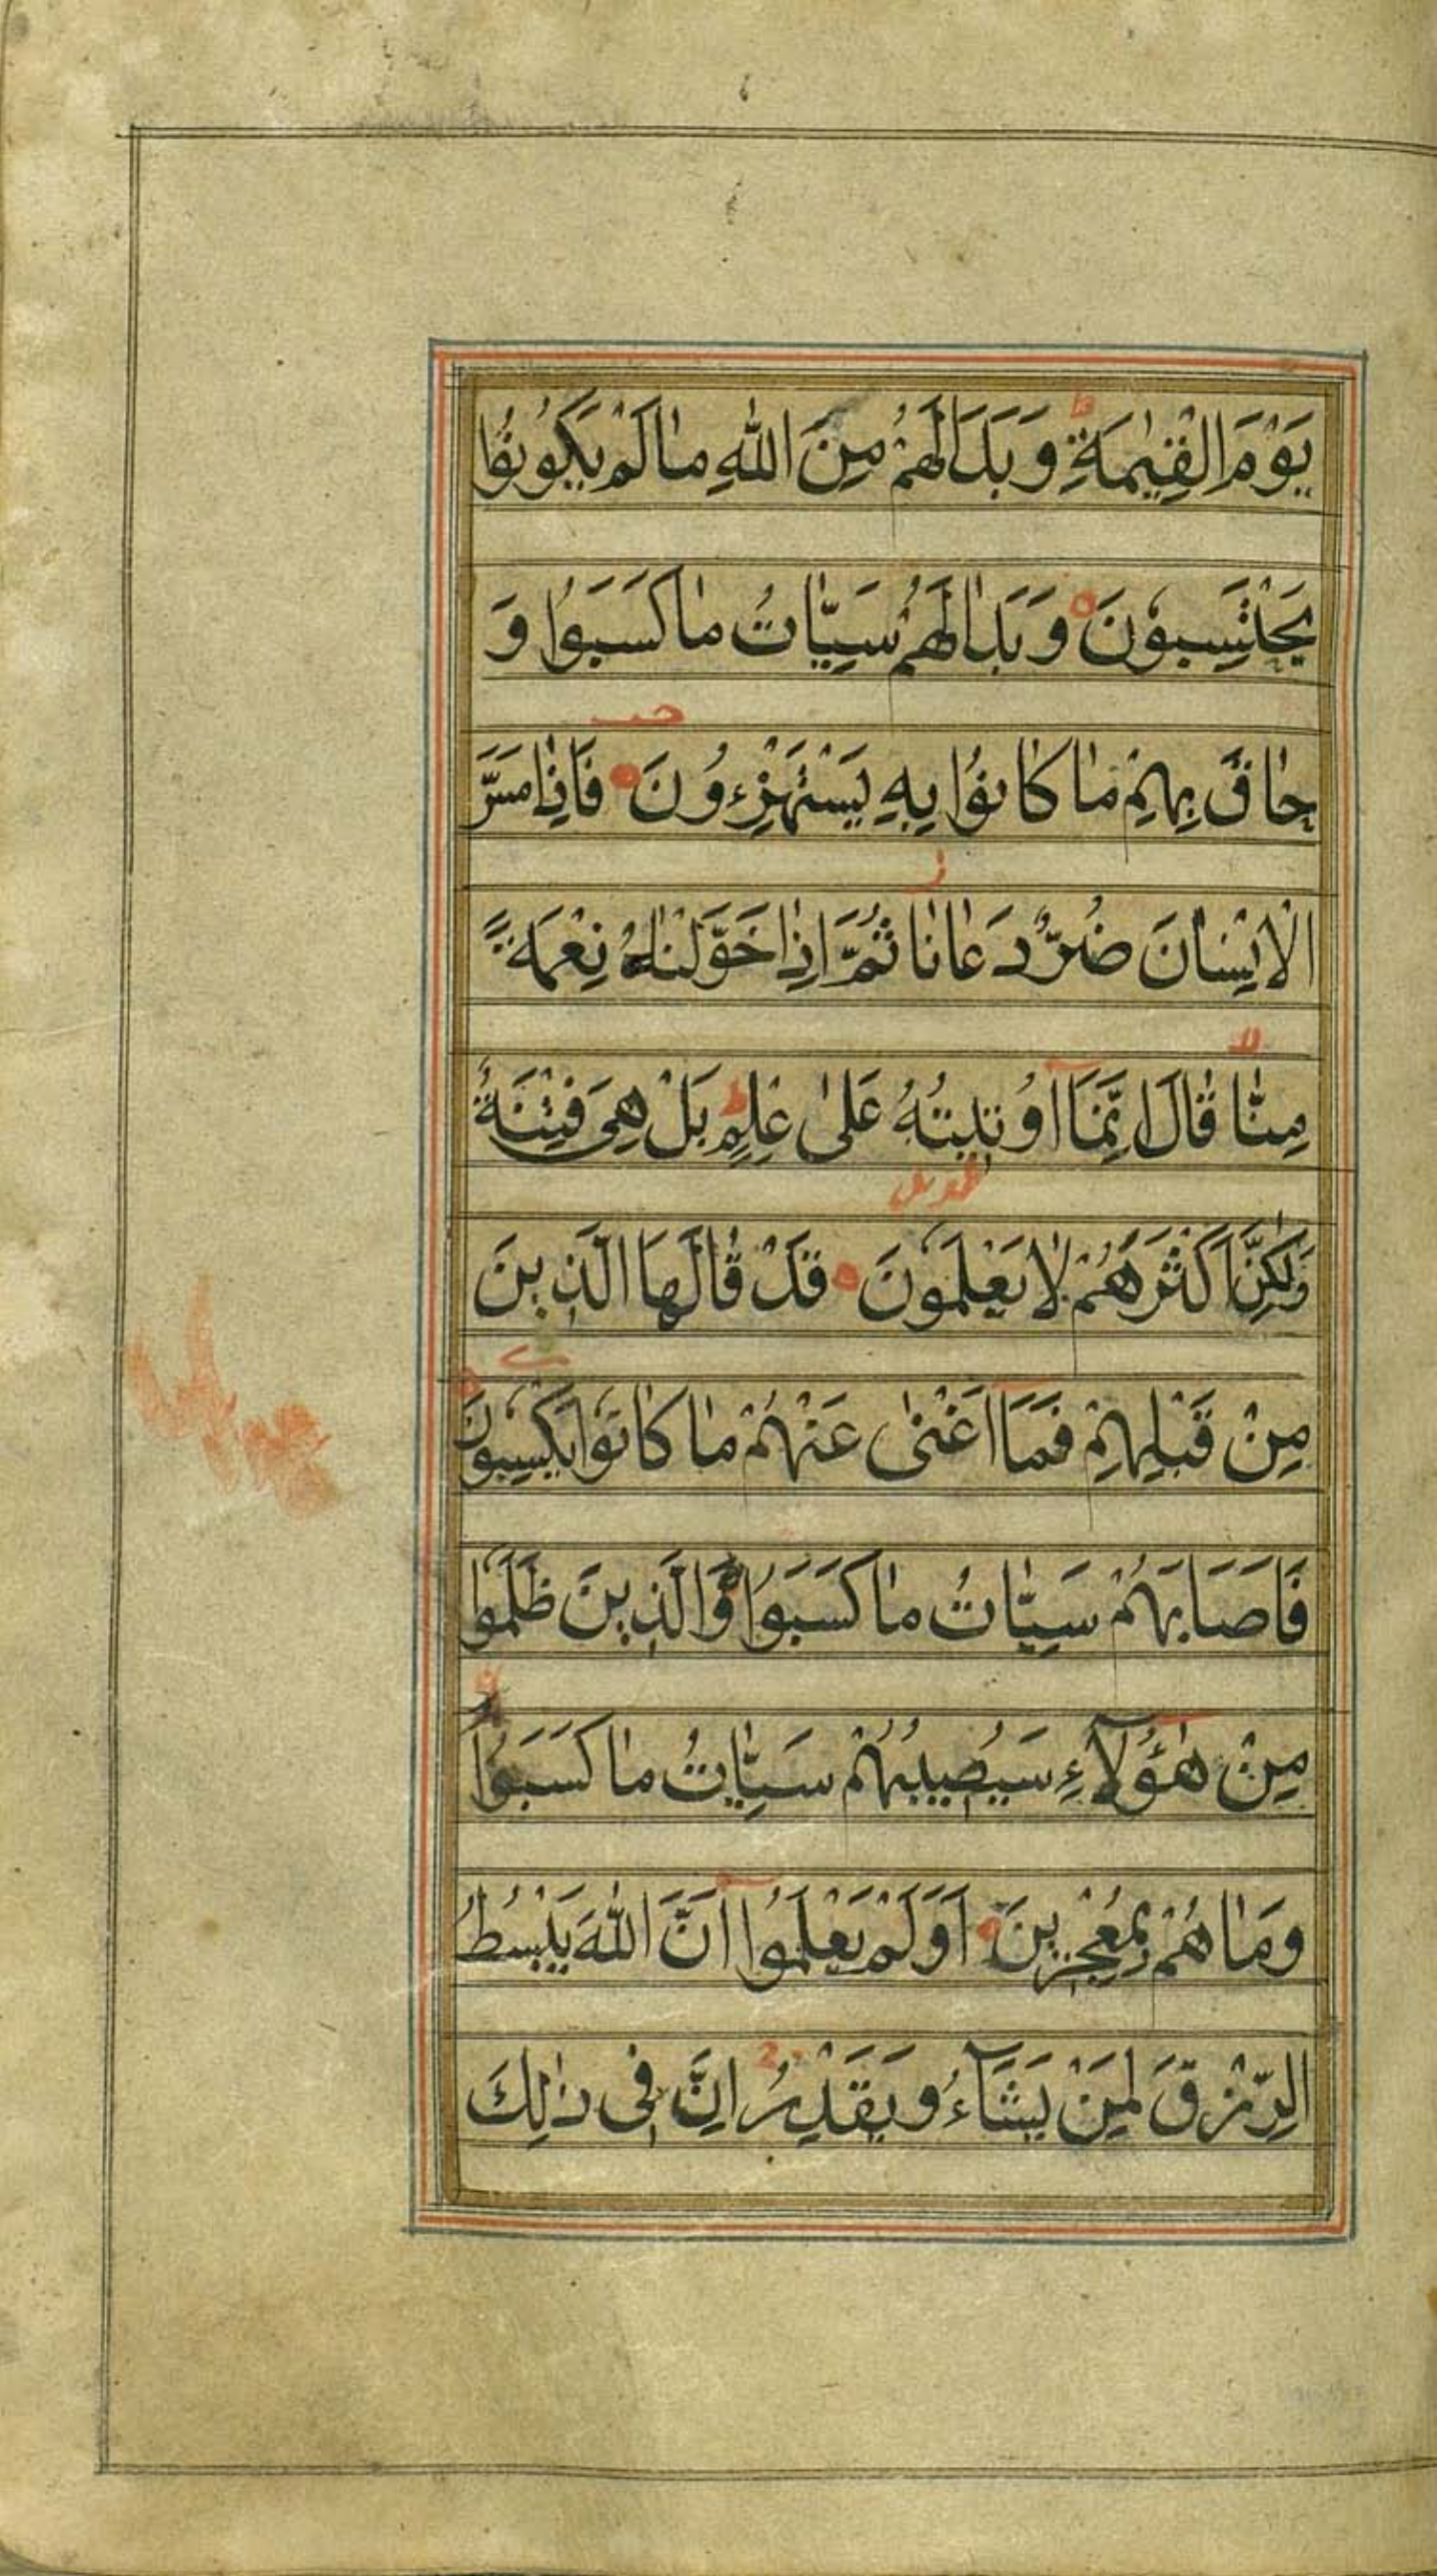 يَوْمَ الْقِيٰمَةِ ط وَبَدَا لَهُمْ مِنَ اللّٰهِ مٰا لَمْ يَكُونُوا
يَحْتَسِبُونَ وَبَدٰا لَهُمْ سَيِّاٰتُ مٰا كَسَبُوا وَ
حٰاقَ بِهِمْ مٰا كٰانُوا بِهِ يَسْتَهْزِءُونَ فَاِذٰا مَسَّ
الْاِنْسٰانَ ضُرٌّ دَعٰانٰا ثُمَّ اِذٰا خَوَّلْنٰاهُ نِعْمَةً
مِنّٰا قٰالَ اِنَّمَآ اُوتِيتُهُ عَلٰى عِلْمٍ ط بَلْ هِىَ فِتْنَةٌ
وَلٰكِنَّ اَكْثَرَهُمْ لٰا يَعْلَمُونَ قَدْ قٰالَهَا الَّذِينَ
مِنْ قَبْلِهِمْ فَمَآ اَغْنٰى عَنْهُمْ مٰا كٰانُوا يَكْسِبُونَ
فَاَصَابَهُمْ سَيِّاٰتُ مٰا كَسَبُوا وَالَّذِينَ ظَلَمُوا
مِنْ هٰٓؤُلَآءِ سَيُصِيبُهُمْ سَيِّاٰتُ مٰا كَسَبُوا
وَمٰا هُمْ بِمُعْجِزِينَ اَوَلَمْ يَعْلَمُوآ اَنَّ اللّٰهَ يَبْسُطُ
الرِّزْقَ لِمَنْ يَشَآءُ وَيَقْدِرُ اِنَّ فِى ذٰلِكَ